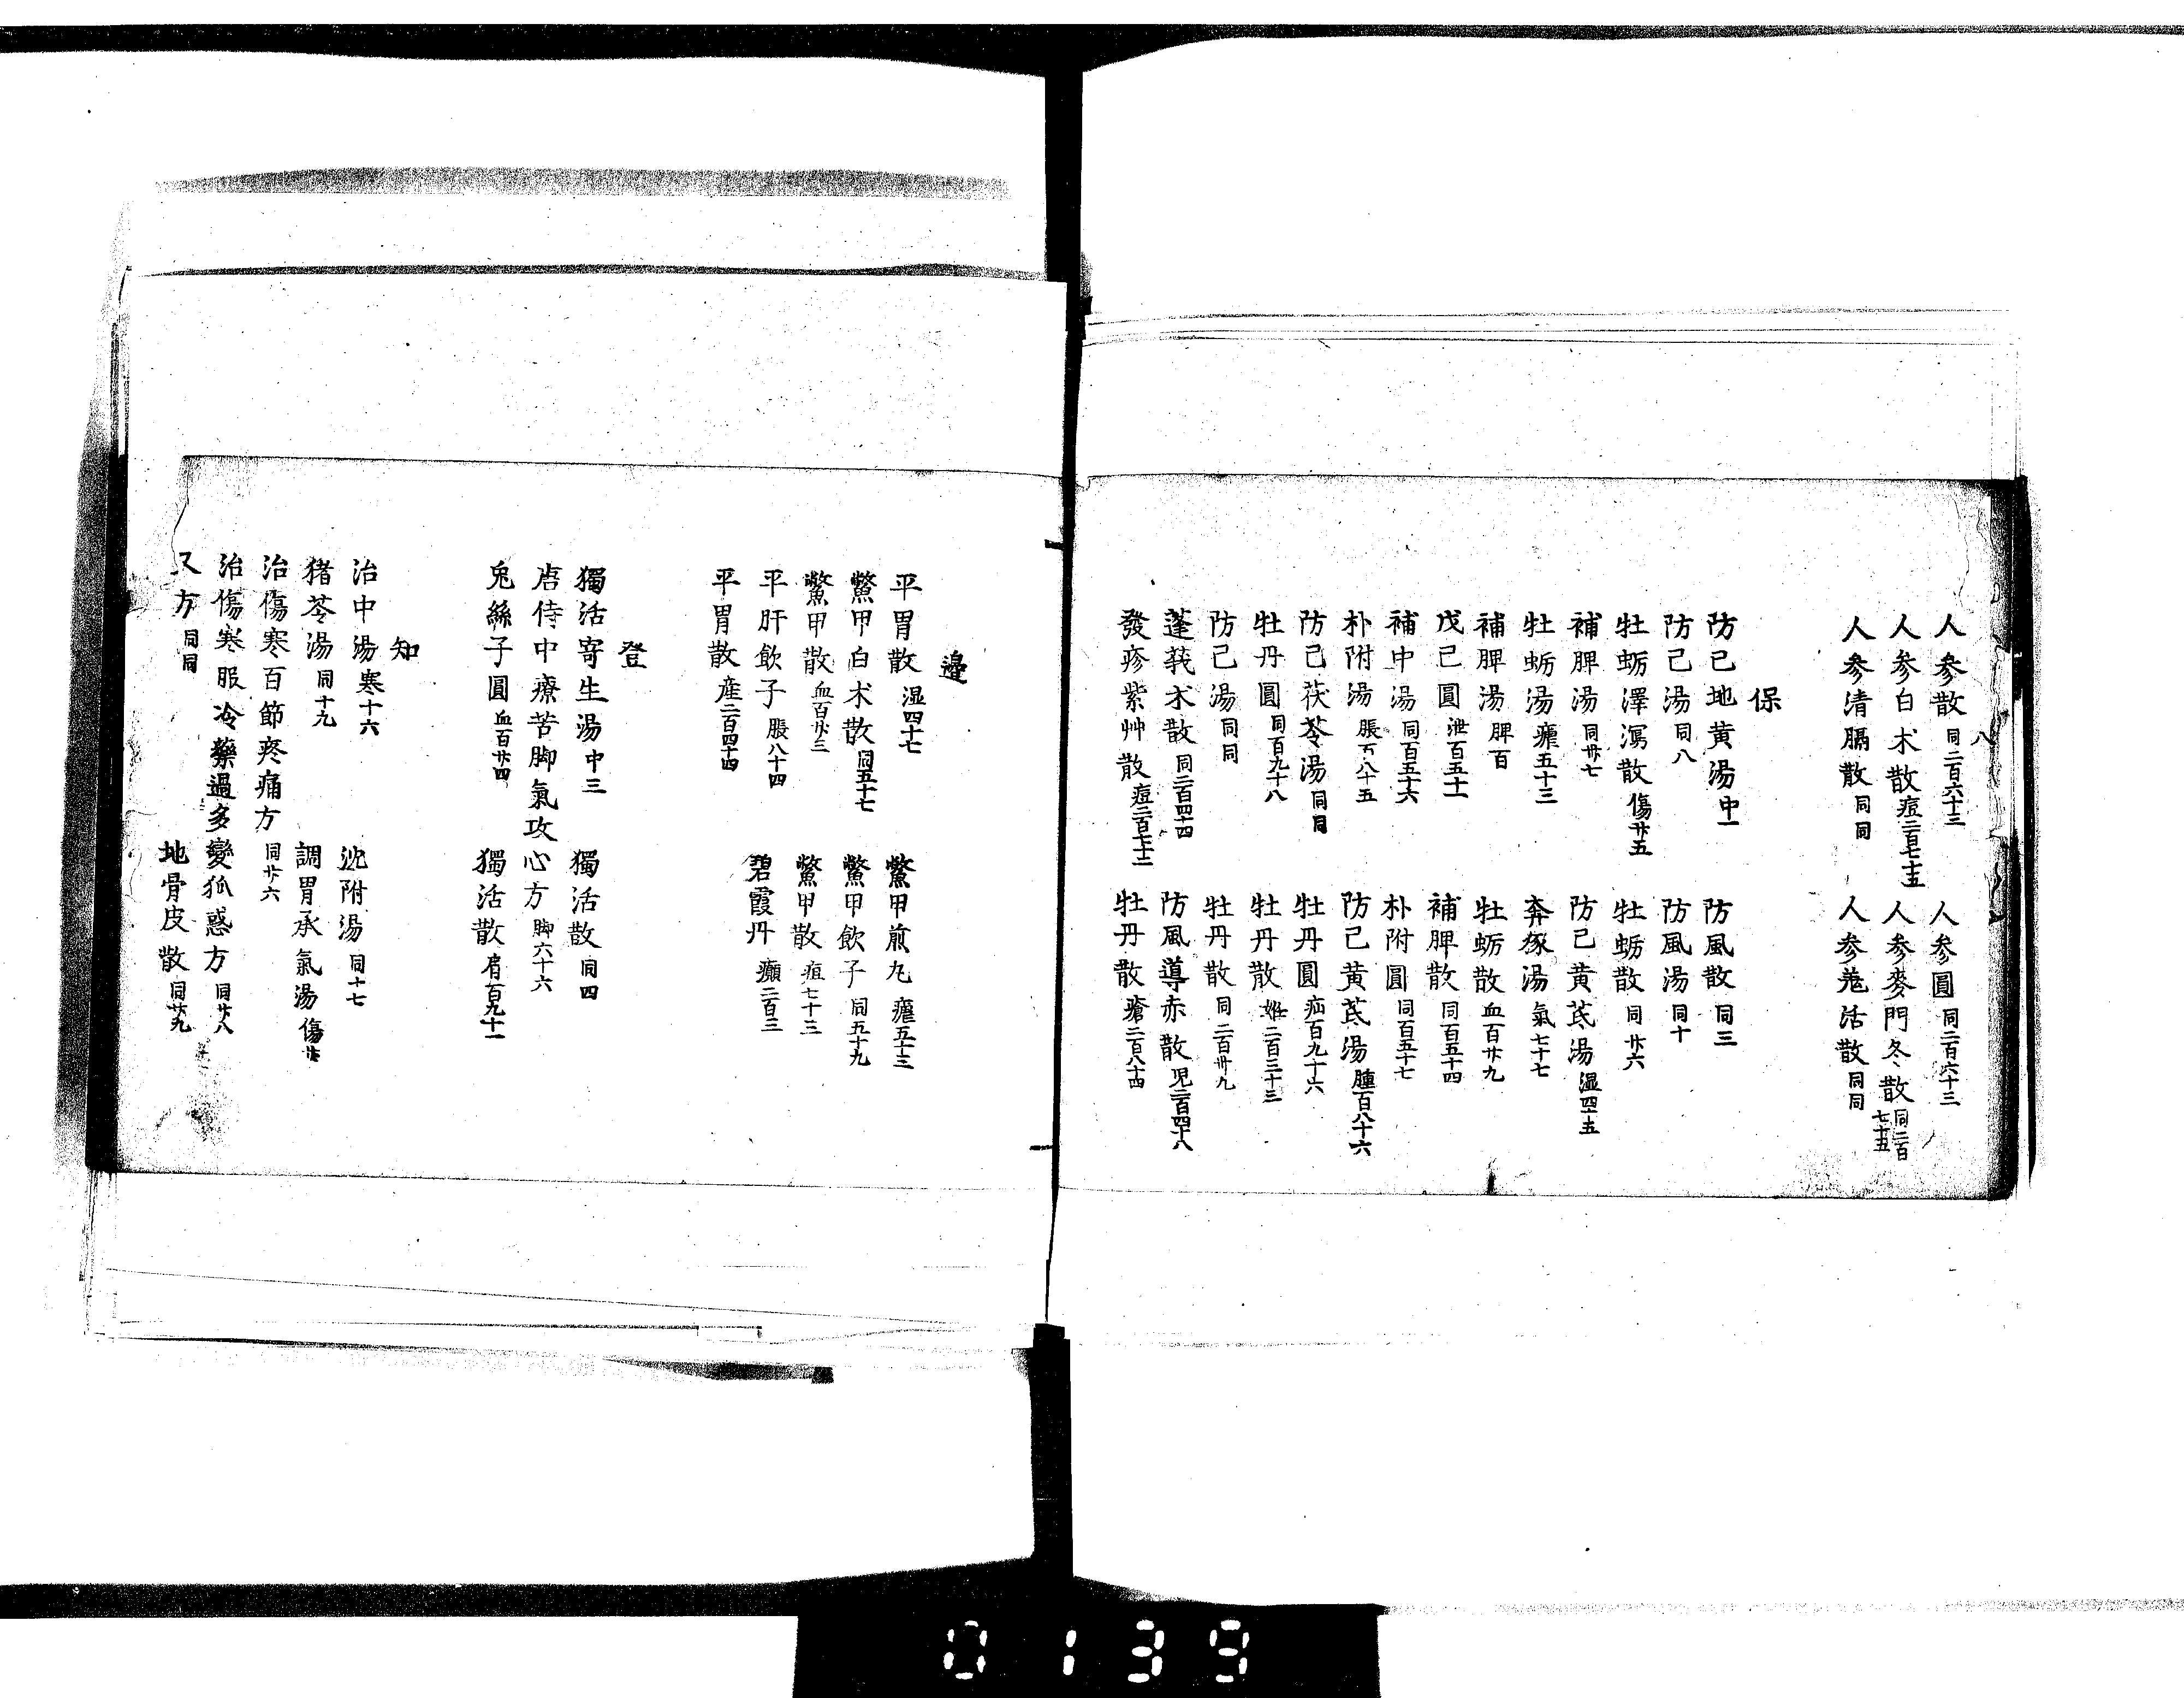 八
人参散 同二百六十三 人参圓 同二百六十三
人参白朮散 痘二百七十五 人参麥門冬散 同二百七十五
人参清膈散 同同 人参羗活散 同同
保
防己地黄湯 中一 防風散 同三
防己湯 同八 防風湯 同十
牡蛎澤瀉散 傷廿五 牡蛎散 同廿六
補脾湯 同卅七 防己黄茋湯 湿四十五
牡蛎湯 瘧五十三 奔豚湯 氣七十七
補脾湯 脾百 牡蛎散 血百廿九
戊己圓 泄百五十一 補脾散 同百五十四
補中湯 同百五十六 朴附圓 同百五十七
朴附湯 脹百八十五 防己黄茋湯 腫百八十六
防己茯苓湯 同同 牡丹圓 疝百九十六
牡丹圓 同百九十八 牡丹散 婦二百三十三
防己湯 同同 牡丹散 同二百卅九
蓬莪朮散 同二百四十四 防風導赤散 児二百四十八
發疹紫艸散 痘二百七十二 牡丹散 瘡二百八十四
邉
平胃散 湿四十七 鱉甲煎丸 瘧五十三
鱉甲白朮散 同五十七 鱉甲飲子 同五十九
鱉甲散 血百廿三 鱉甲散 疽七十三
平肝飲子 脹八十四 碧霞丹 癲二百三
平胃散 産二百四十四
登
獨活寄生湯 中三 獨活散 同四
唐侍中療苦脚氣攻心方 脚六十六
兎絲子圓 血百廿四 獨活散 肩百九十一
知
治中湯 寒十六 沈附湯 同十七
猪苓湯 同十九 調胃承氣湯 傷廿
治傷寒百節疼痛方 同廿六
治傷寒服冷藥過多變狐惑方 同廿八
又方 同同 地骨皮散 同廿九
0139